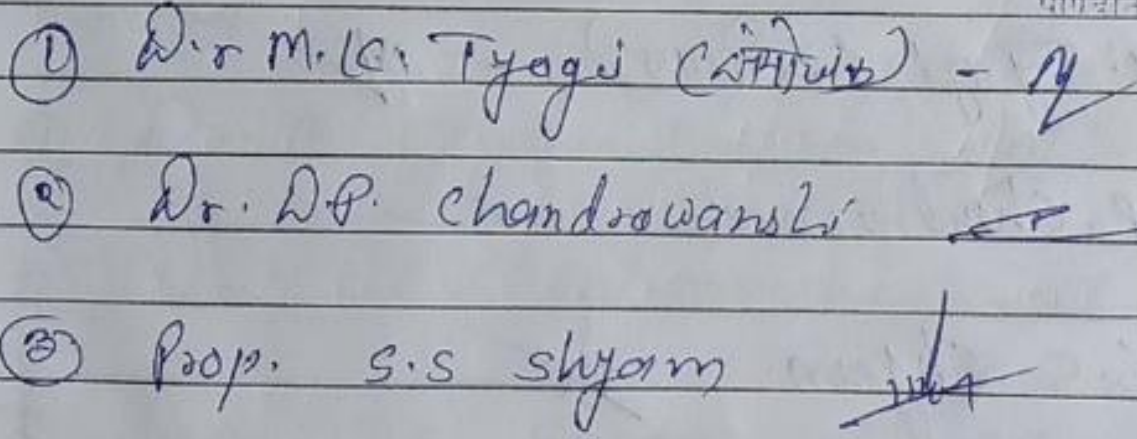 ① D.r M.K. Tyagi (संयोजक) -
② Dr. D.P. Chandrawanshi
③ Prop. S.S Shyam